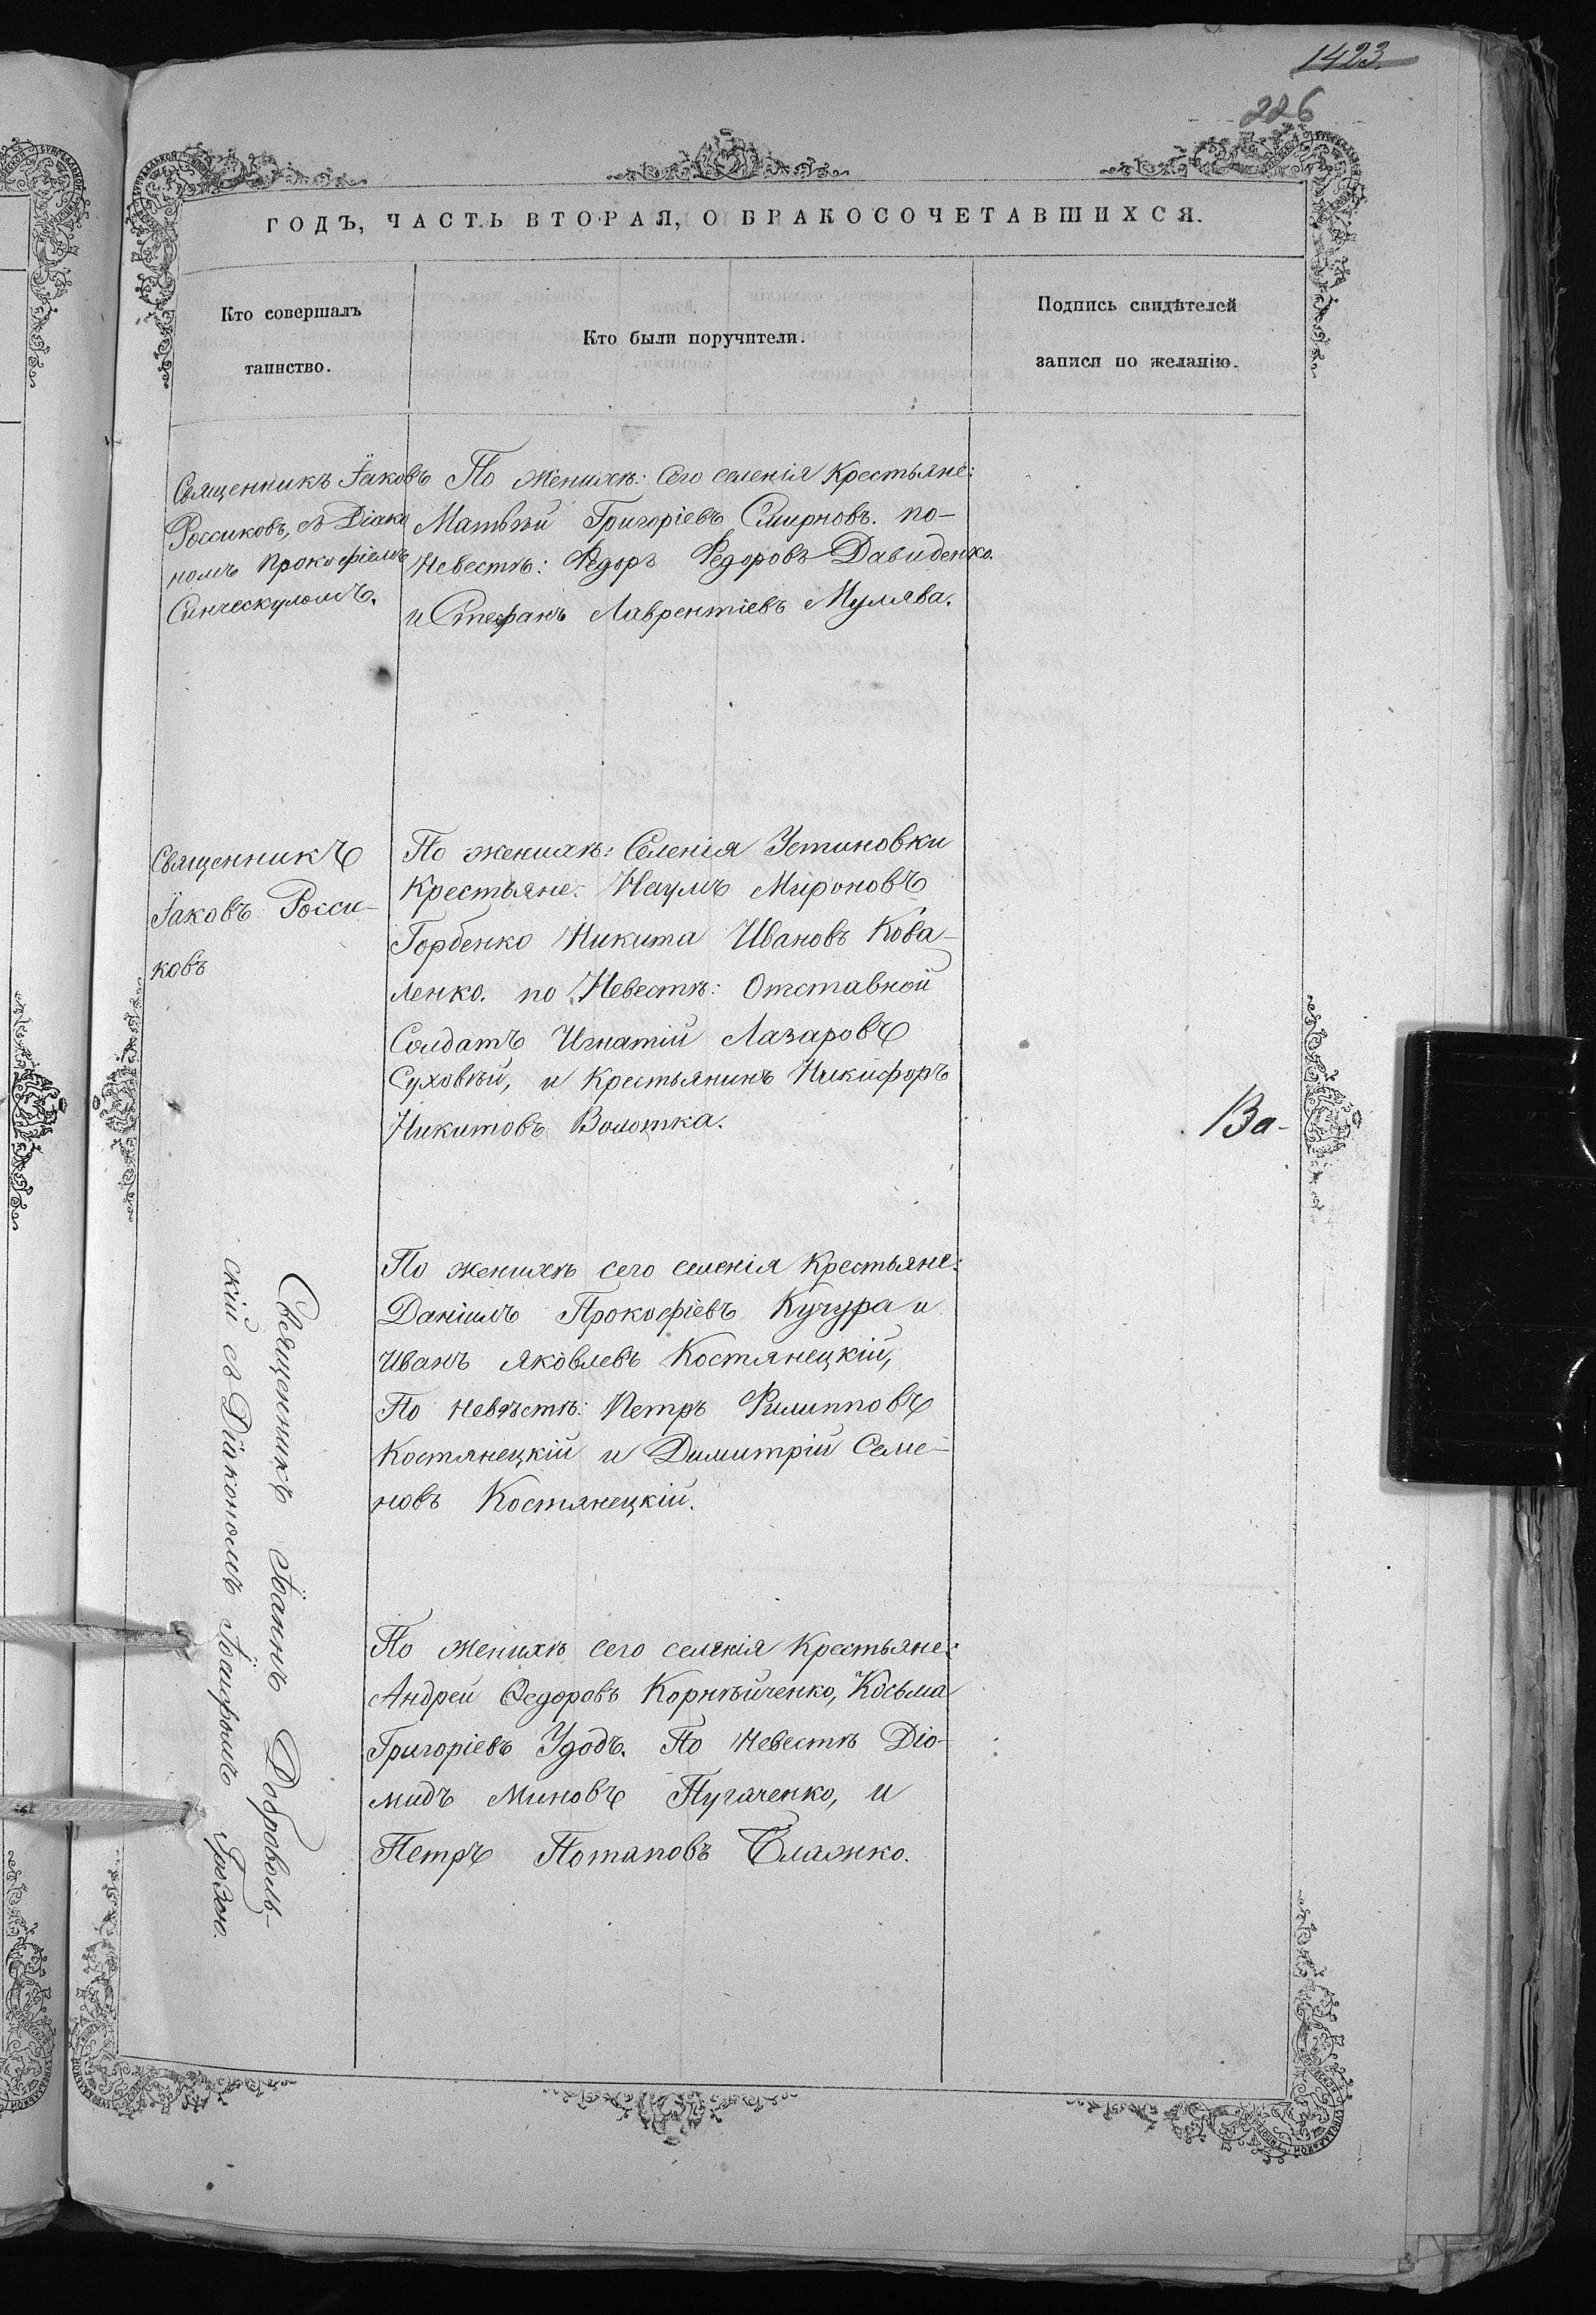 1423
226
ГОДЪ, ЧАСТЬ ВТОРАЯ, О БРАКОСОЧЕТАВШИХСЯ.
Кто совершалъ
таинство.
Кто были поручители.
Подпись свидѣтелей
записи по желанію.
Священникъ Іаковъ
Россиковъ, съ Діако
номъ Прокофіемъ
Синческуломъ.
По женихѣ: Сего селенія Крестьяне:
Матвѣй Григоріевъ Смирновъ. по-
Невестѣ: Федоръ Федоровъ Давиденко.
и Стефанъ Лаврентіевъ Мулява.
Священникъ
Іаковъ Росси-
ковъ
По женихѣ: Селенія Устиновки
Крестьяне: Наумъ Мироновъ
Горбенко Никита Ивановъ Кова-
ленко. по Невестѣ: Отставной
Солдатъ Игнатій Лазаровъ
Суховѣй, и Крестьянинъ Никифоръ
Никитовъ Волотка.
Ва-
Священникъ Іоаннъ Доброволь-
скій съ Діакономъ Грозою.
По женихѣ сего селенія Крестьяне:
Даніилъ Прокофіевъ Кучура и
Иванъ Яковлевъ Костянецкій,
По Невѣстѣ: Петръ Филипповъ
Костянецкій и Димитрій Семе-
новъ Костянецкій.
По женихѣ сего селенія Крестьяне:
Андрей Ѳедоровъ Корнѣйченко, Косьма
Григоріевъ Удодъ. По Невестѣ Діо-
мидъ Миновъ Пугаченко, и
Петръ Потаповъ Блажко.